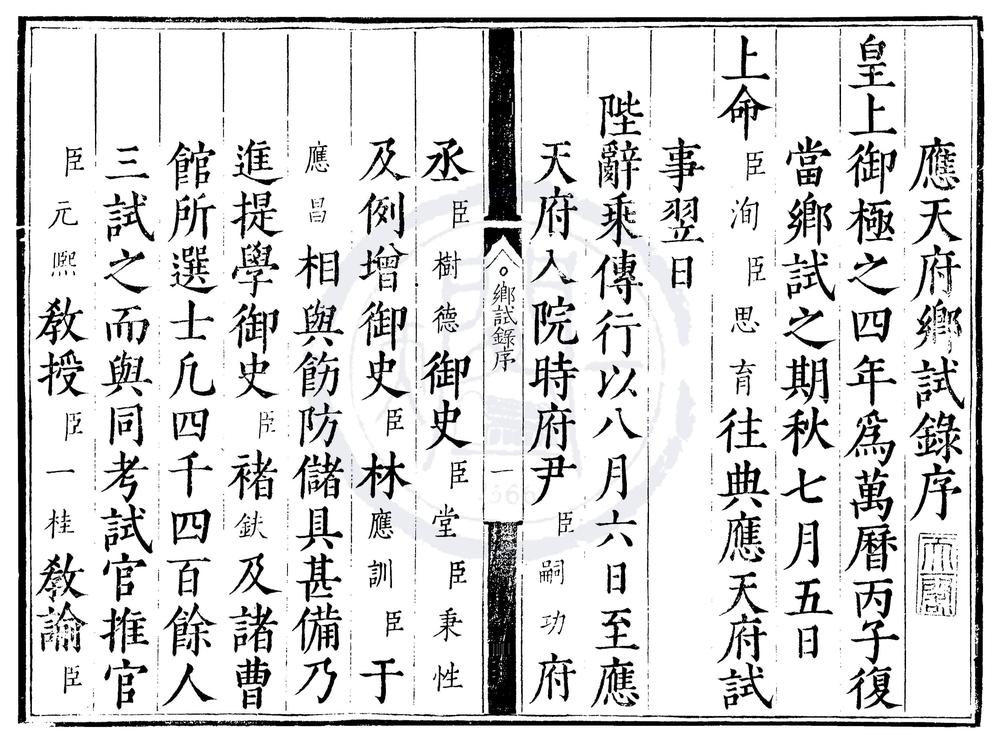 應天府鄉試錄序
皇上御極之四年爲萬曆丙子復
當鄉試之期秋七月五日
上命臣洵臣思育往典應天府試
事翌日
陛辭乘傳行以八月六日至應
天府入院時府尹臣嗣功府
鄉試錄序
一
丞臣樹德御史臣堂臣秉性
及例增御史臣林應訓臣于
應昌相與飭防儲具甚備乃
進提學御史臣褚鈇及諸曹
館所選士凡四千四百餘人
三試之而與同考試官推官
臣元熙敎授臣一桂敎諭臣